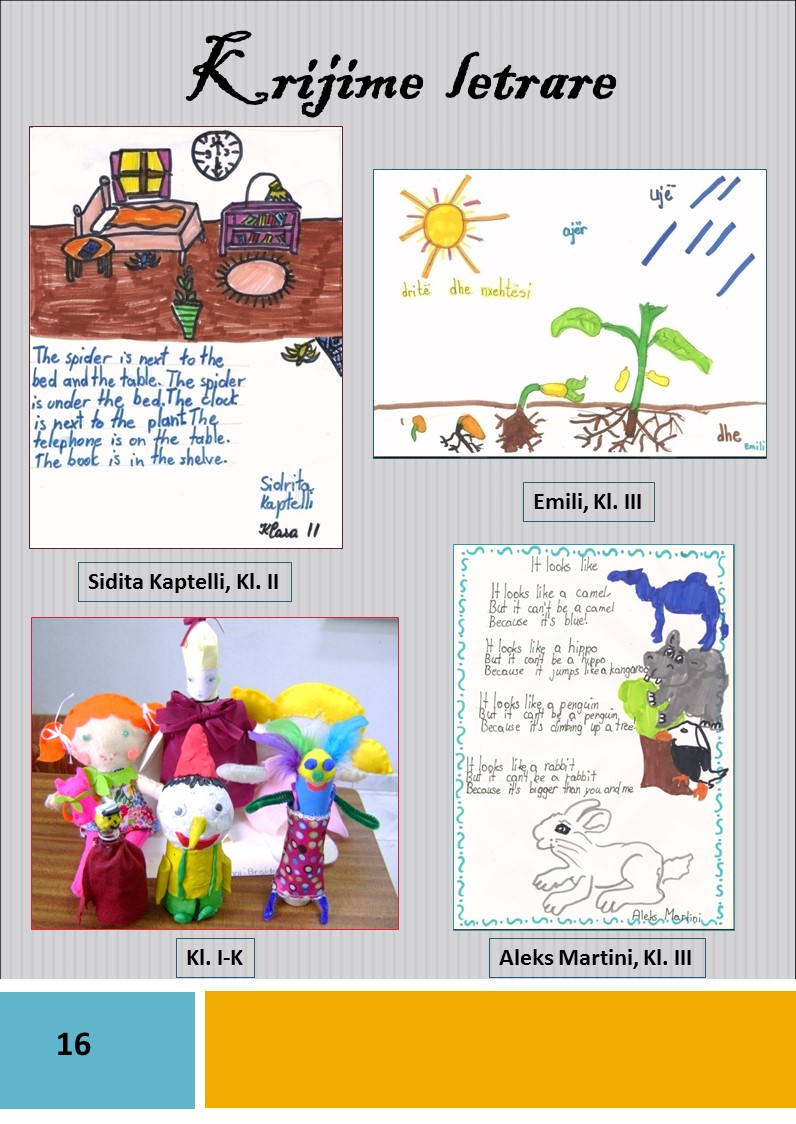 Krijime letrare
The spider is next to the
bed and the table. The spider
is under the bed. The clock
is next to the plant The
telephone is on the table.
The book is in the shelve.
Sidrita
Kaptelli
Klasa II
Sidita Kaptelli, Kl. II
ujë
ajër
dritë dhe nxehtësi
dhe
Emili
Emili, Kl. III
It looks like
It looks like a camel,
But it can't be a camel
Because it's blue!
It looks like a hippo
But it can't be a hippo
Because it jumps like a kangaroo
It looks like a penguin
But it can't be a penguin
Because it's climbing up a tree!
It looks like a rabbit
But it can't be a rabbit
Because it's bigger than you and me
Aleks Martini
Kl. I-K
Aleks Martini, Kl. III
16